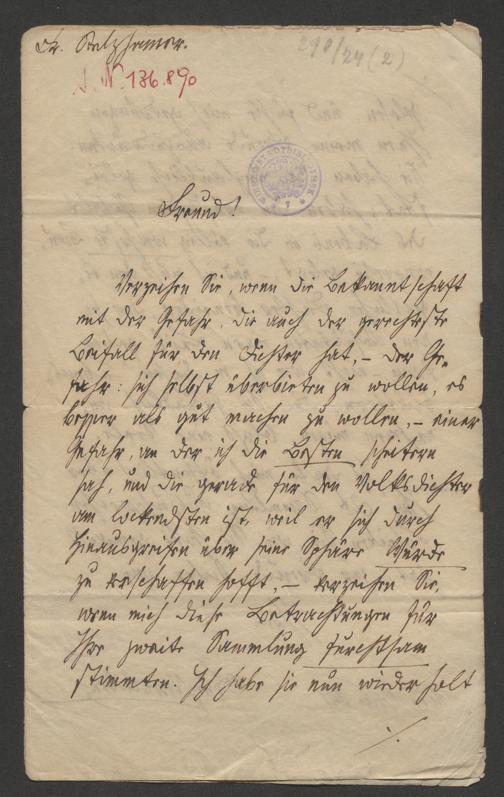 Fr. Stelzhamer.
290/24 (2)
J. N. 136.890
Freund!
Verzeihen Sie, wenn die Bekanntschaft
mit der Gefahr, die auch der gerechteste
Beifall für den Dichter hat, – der Ge-
fahr: sich selbst überbieten zu wollen, es
besser als gut machen zu wollen, – einer
Gefahr, an der ich die Besten scheitern
sah, und die gerade für den Volksdichter
am lockendsten ist, weil er sich durch
Hinausgreifen über seine Sphäre Würde
zu verschaffen hofft, – verzeihen Sie,
wenn mich diese Betrachtungen für
Ihre zweite Sammlung furchtsam
stimmten. Ich habe sie nun wiederholt
./.